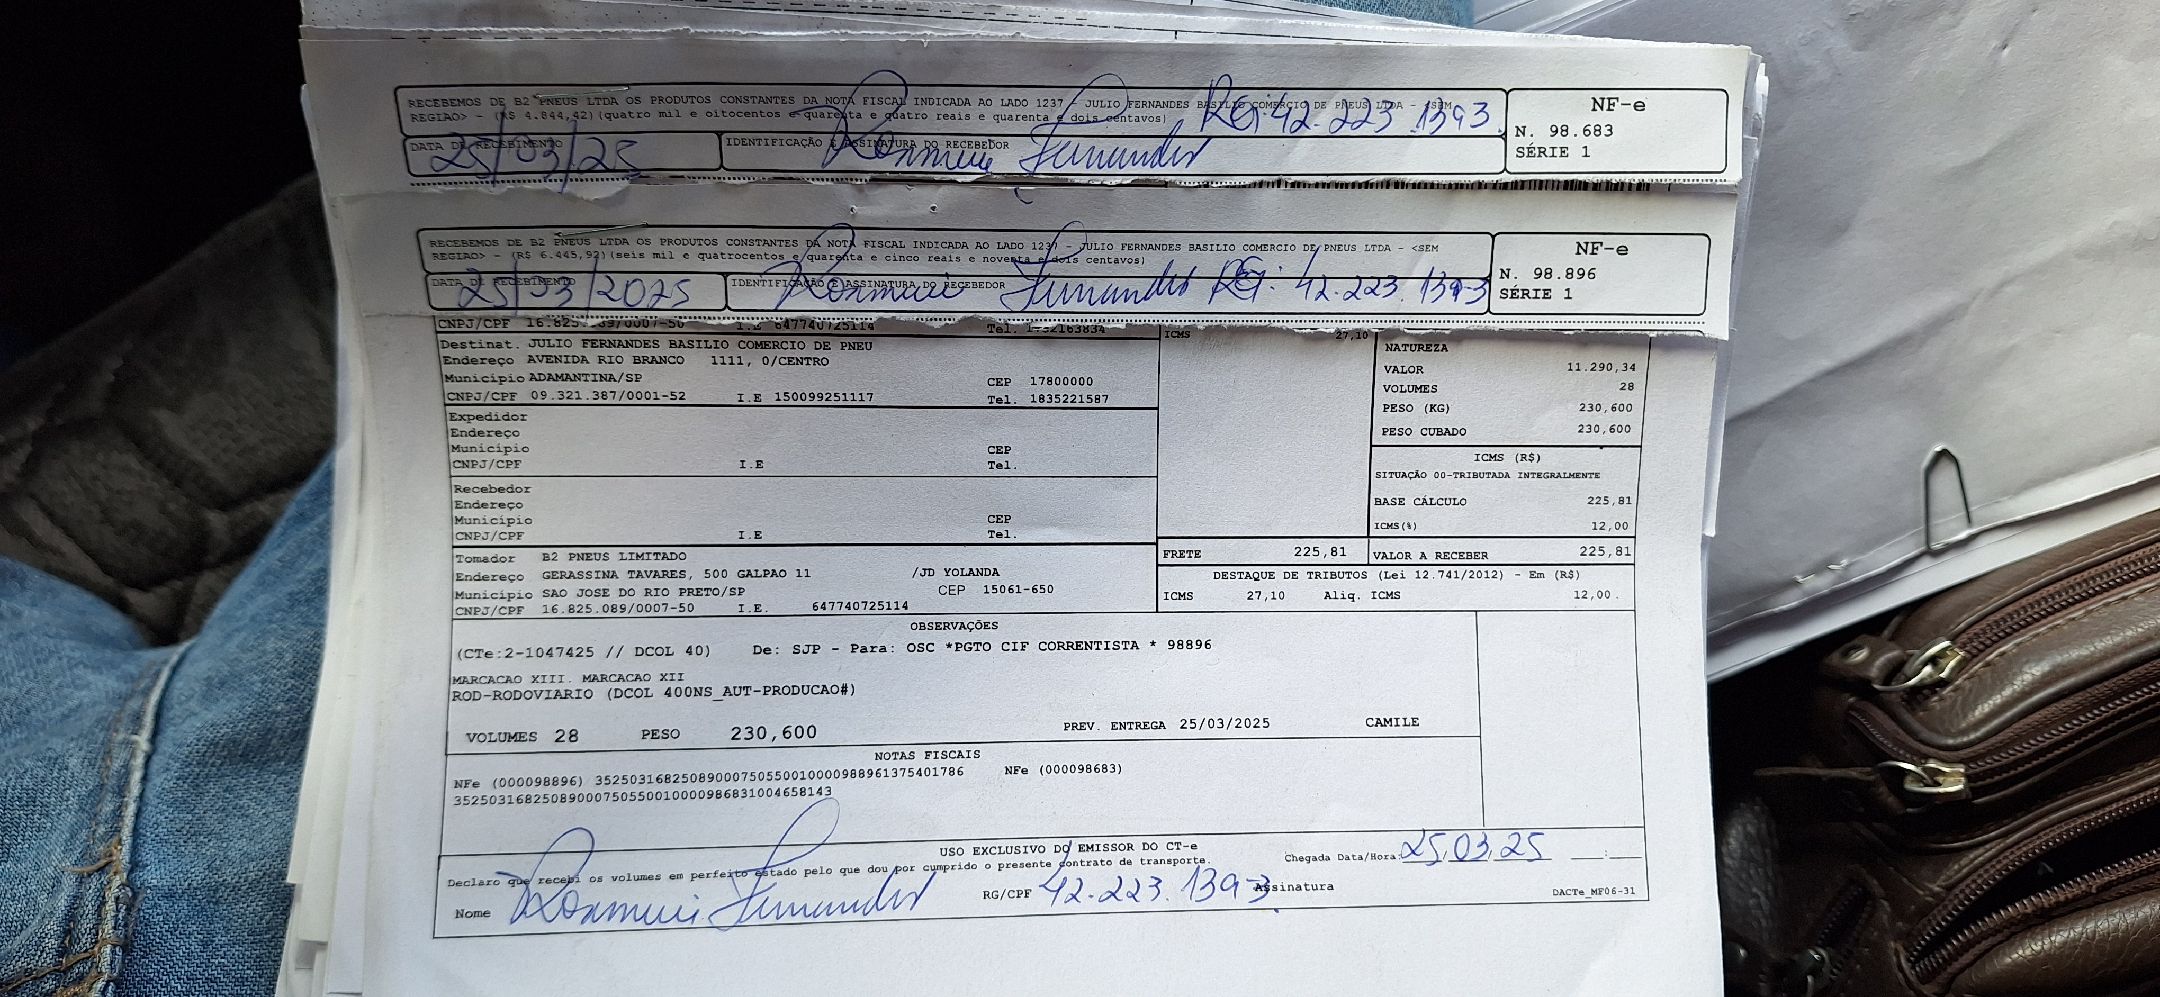 RECEBEMOS DE B2 PNEUS LTDA OS PRODUTOS CONSTANTES DA NOTA FISCAL INDICADA AO LADO 1237 - JULIO FERNANDES BASILIO COMERCIO DE PNEUS LTDA - <SEM
REGIAO> - (R$ 4.844,42)(quatro mil e oitocentos e quarenta e quatro reais e quarenta e dois centavos) RG: 42.223.139-3
DATA DE RECEBIMENTO IDENTIFICAÇÃO E ASSINATURA DO RECEBEDOR
25/03/25 Fernandes
NF-e
N. 98.683
SÉRIE 1
RECEBEMOS DE B2 PNEUS LTDA OS PRODUTOS CONSTANTES DA NOTA FISCAL INDICADA AO LADO 1237 - JULIO FERNANDES BASILIO COMERCIO DE PNEUS LTDA - <SEM
REGIAO> - (R$ 6.445,92)(seis mil e quatrocentos e quarenta e cinco reais e noventa e dois centavos)
DATA DE RECEBIMENTO IDENTIFICAÇÃO E ASSINATURA DO RECEBEDOR
25/03/2025 Fernandes RG: 42.223.139-3
NF-e
N. 98.896
SÉRIE 1
CNPJ/CPF 16.825.089/0007-50 I.E 647740725114 Tel.
Destinat. JULIO FERNANDES BASILIO COMERCIO DE PNEU
Endereço AVENIDA RIO BRANCO 1111, 0/CENTRO
Município ADAMANTINA/SP CEP 17800000
CNPJ/CPF 09.321.387/0001-52 I.E 150099251117 Tel. 1835221587
Expedidor
Endereço
Município CEP
CNPJ/CPF I.E Tel.
Recebedor
Endereço
Município CEP
CNPJ/CPF I.E Tel.
Tomador B2 PNEUS LIMITADO
Endereço GERASSINA TAVARES, 500 GALPAO 11 /JD YOLANDA
Município SAO JOSE DO RIO PRETO/SP CEP 15061-650
CNPJ/CPF 16.825.089/0007-50 I.E. 647740725114
ICMS 27,10
NATUREZA
VALOR 11.290,34
VOLUMES 28
PESO (KG) 230,600
PESO CUBADO 230,600
ICMS (R$)
SITUAÇÃO 00-TRIBUTADA INTEGRALMENTE
BASE CÁLCULO 225,81
ICMS(%) 12,00
FRETE 225,81 VALOR A RECEBER 225,81
DESTAQUE DE TRIBUTOS (Lei 12.741/2012) - Em (R$)
ICMS 27,10 Aliq. ICMS 12,00.
OBSERVAÇÕES
(CTe:2-1047425 // DCOL 40) De: SJP - Para: OSC *PGTO CIF CORRENTISTA * 98896
MARCACAO XIII. MARCACAO XII
ROD-RODOVIARIO (DCOL 400NS_AUT-PRODUCAO#)
VOLUMES 28 PESO 230,600 PREV. ENTREGA 25/03/2025 CAMILE
NOTAS FISCAIS
NFe (000098896) 35250316825089000750550010000988961375401786 NFe (000098683)
35250316825089000750550010000986831004658143
USO EXCLUSIVO DO EMISSOR DO CT-e
Declaro que recebi os volumes em perfeito estado pelo que dou por cumprido o presente contrato de transporte. Chegada Data/Hora: 25.03.25 __:__
Nome Fernandes RG/CPF 42.223.139-3 Assinatura DACTe_MF06-31